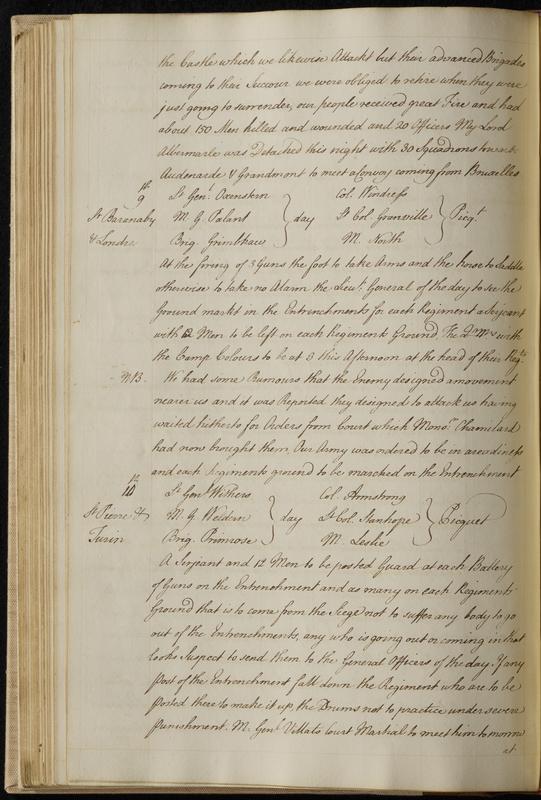 the Castle which we likewise Attackt but their advanced Brigades
coming to their Succour we were obliged to retire when they were
just going to surrender, our people received great Fire and had
about 150 Men killed and wounded and 20 Officers My Lord
Albermarle was Detached this night with 30 Squadrons towards
Audenarde & Grandmont to meet a Convoy coming from Bruxelles
9th Lt Genl Oxenstern Col. Windress
St Barnaby M. G. Palant } day Lt Col. Granville } Picqt
& Londre Brig. Grimbkaw M. North
At the firing of 3 Guns the foot to take Arms and the horse to Saddle
otherwise to take no Alarm the Lieut. General of the day to see the
Ground markt in the Entrenchments for each Regiment a Serjeant
with 12 Men to be left on each Regiments Ground, The Qr Mrs with
the Camp Colours to be at 3 this Afternoon at the head of their Regts
NB. We had some Rumours that the Enemy designed a movement
nearer us and it was Reported they designed to attack us having
waited hitherto for Orders from Court which Monsr Chamilard
had now brought them, Our Army was ordered to be in a readiness
and each Regiments ground to be marched on the Entrenchment
10th Lt Genl Withers Col. Armstrong
St Pierre & M. G. Weldern } day Lt Col. Stanhope } Picquet
Turin Brig. Primrose M. Leslie
A Serjant and 12 Men to be posted Guard at each Battery
of Guns on the Entrenchment and as many on each Regiments
Ground that is to come from the Seige not to suffer any body to go
out of the Entrenchments, any who is going out or coming in that
looks Suspect to send them to the General Officers of the day. If any
Post of the Entrenchment fall down the Regiment who are to be
Posted there to make it up the Drums not to practice under severe
Punishment. M. Genl Villats Court Martial to meet him to morrow
at